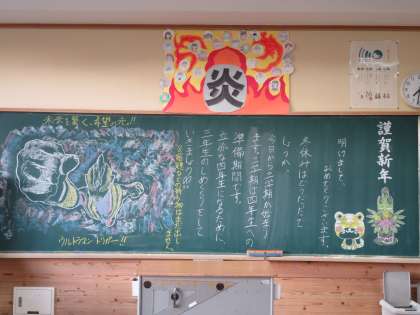 炎
謹賀新年
明けました。
おめでとうございます。
冬休みはどうだったで
しょうか。
今日から三学期が始まり
ます。三学期は四年生への
準備期間です。
立派な四年生になるために、
三年生のしめくくりをして
いきましょう!!
未来を築く、希望の光!!
ウルトラマン トリガー!!